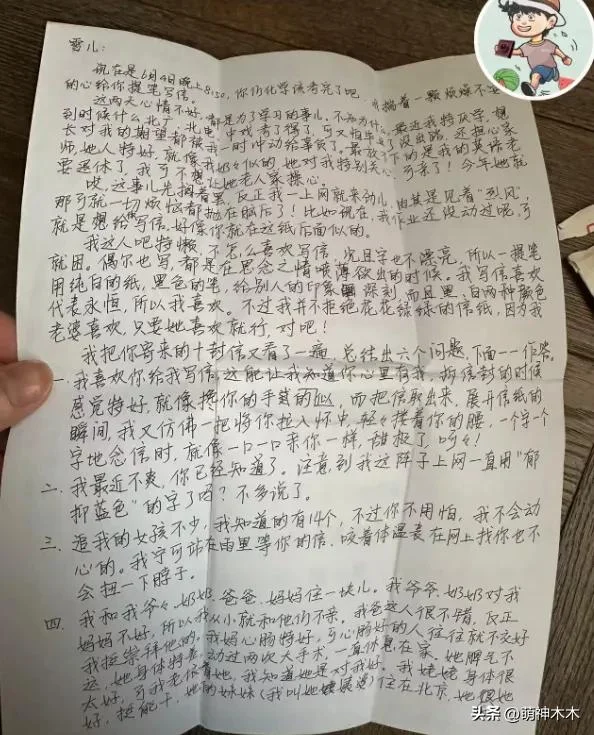 雪儿：
现在是6月4日晚上8:30，你们化学该考完了吧。揣着一颗烦燥不安
的心给你提笔写信。
这两天心情不好，都是为了学习的事儿，不知为什么，最近我特厌学，想
到时候什么北广、北电、中戏考了得了，可又怕毕了没出路，还担心家
长对我的期望都被我一时冲动给辜负了。最放不下的是我的英语老
师，她人特好，就像我奶奶似的，她对我特别关心，可亲了！今年她就
要退休了，我可不想让她老人家操心。
咳，这事儿先搁着罢，反正我一上网就来劲儿，由其是见着“烈风”，
那可就一切烦恼都抛在脑后了！比如现在，我作业还没动过呢，可
就是想给你写信，好像你就在这纸后面似的。
我这人吧特懒，不怎么喜欢写信，况且字也不漂亮，所以一提笔
就困。偶尔也写，都是在思念之情喷薄欲出的时候。我写信喜欢
用纯白的纸，黑色的笔，给别人的印象深刻，而且黑、白两种颜色
代表永恒，所以我喜欢。不过我并不拒绝花花绿绿的信纸，因为我
老婆喜欢，只要她喜欢就行，对吧！
我把你寄来的十封信又看了一遍，总结出六个问题，下面一一作答。
一. 我喜欢你给我写信，这能让我知道你心里有我，拆信封的时候
感觉特好，就像搀你的手其的似，而把信取出来，展开信纸的
瞬间，我又仿佛一把将你拉入怀中，轻轻搂着你的腰，一个字一个
字地念信时，就像一口一口亲你一样，甜极了，呵呵！
二. 我最近不爽，你已经知道了。注意到我这阵子上网一直用“郁
抑蓝色”的字了吗？不多说了。
三. 追我的女孩不少，我知道的有14个，不过你不用怕，我不会动
心的。我宁可站在雨里等你的信，咬着体温表在网上找你也不
会扭一下脖子。
四. 我和我爷爷、奶奶、爸爸、妈妈住一块儿。我爷爷、奶奶对我
妈妈不好，所以我从小就和他们不亲。我爸这人很不错，反正
我挺崇拜他的。我妈心肠特好，可心肠好的人往往就不交好
运，她身体特差，动过两次大手术，一直休息在家。她脾气不
太好，可我老依着她，我知道她是对我好。我姥姥身体很
好，挺能干，她的妹妹（我叫她姨姥姥）住在北京，她很
头条 @萌神木木